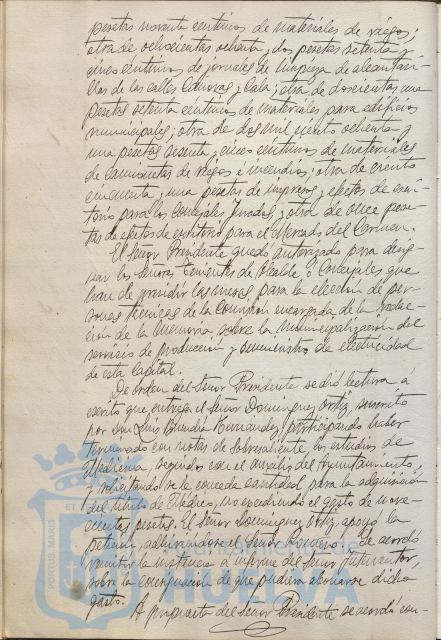 pesetas noventa centimos de materiales de riego;
otra de ochocientas ochenta y dos pesetas setenta y
cinco centimos de jornales de limpieza de alcantari-
llas de las calles Canovas y Cala; otra de doscientas una
pesetas setenta centimos de materiales para edificios
municipales; otra de dos mil ciento ochenta y
una pesetas sesenta y cinco centimos de materiales
de camionetas de riegos e incendios; otra de ciento
cincuenta y una pesetas de impresos y efectos de escri-
torio para los Concejales Jurados; otra de once pese-
tas de efectos de escritorio para el Mercado del Carmen.
El Señor Presidente quedó autorizado para desig-
nar los Señores Tenientes de Alcalde ó Concejales que
han de presidir las mesas para la elección de per-
sonas técnicas de la Comisión encargada de la redac-
ción de la Memoria sobre la Municipalización del
servicio de producción y suministro de electricidad
de esta capital.
De orden del Señor Presidente se dió lectura á
escrito que entrega el Señor Dominguez Ortiz, suscrito
por Don Luis Buendia Fernandez, participando haber
terminado con notas de Sobresaliente los estudios de
Medicina, seguidos con el auxilio del Ayuntamiento,
y solicitando se le conceda cantidad para la adquisición
del título de Médico, no excediendo el gasto de nove-
cientas pesetas. El Señor Dominguez Ortiz apoyó la
petición, adhiriendose el Señor Romero y se acordó
remitir la instancia a informe del Señor Interventor,
sobre la consignación de que pudiera abonarse dicho
gasto.
A propuesta del Señor Presidente se acordó con-
PORTUS MARIS ET
Ayuntamiento de
HUELVA